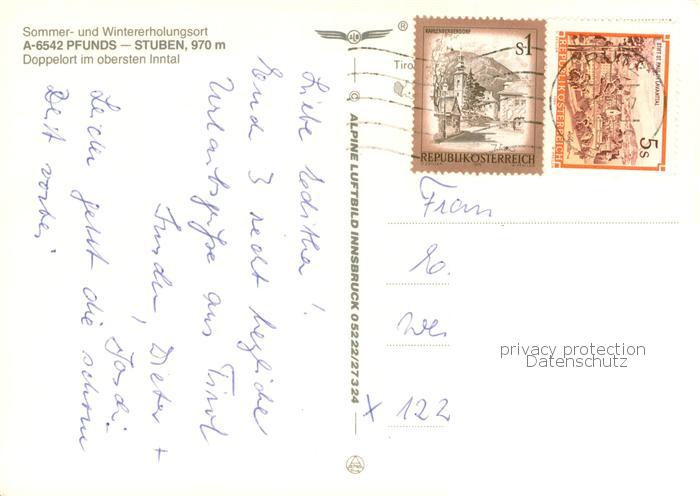 Sommer- und Wintererholungsort
A-6542 PFUNDS — STUBEN, 970 m
Doppelort im obersten Inntal
Liebe Editha!
Euch 3 recht herzliche
Urlaubsgrüße aus Tirol
Dieter +
Leider geht die schöne
Zeit vorbei
© ALPINE LUFTBILD INNSBRUCK 05222/27324
®
Tiro
KAHLENBERGERDORF
S1
REPUBLIK ÖSTERREICH
STIFT ST. PAUL IM LAVANTTAL
REPUBLIK ÖSTERREICH
5s
Frau
E.
We
privacy protection
Datenschutz
x 122